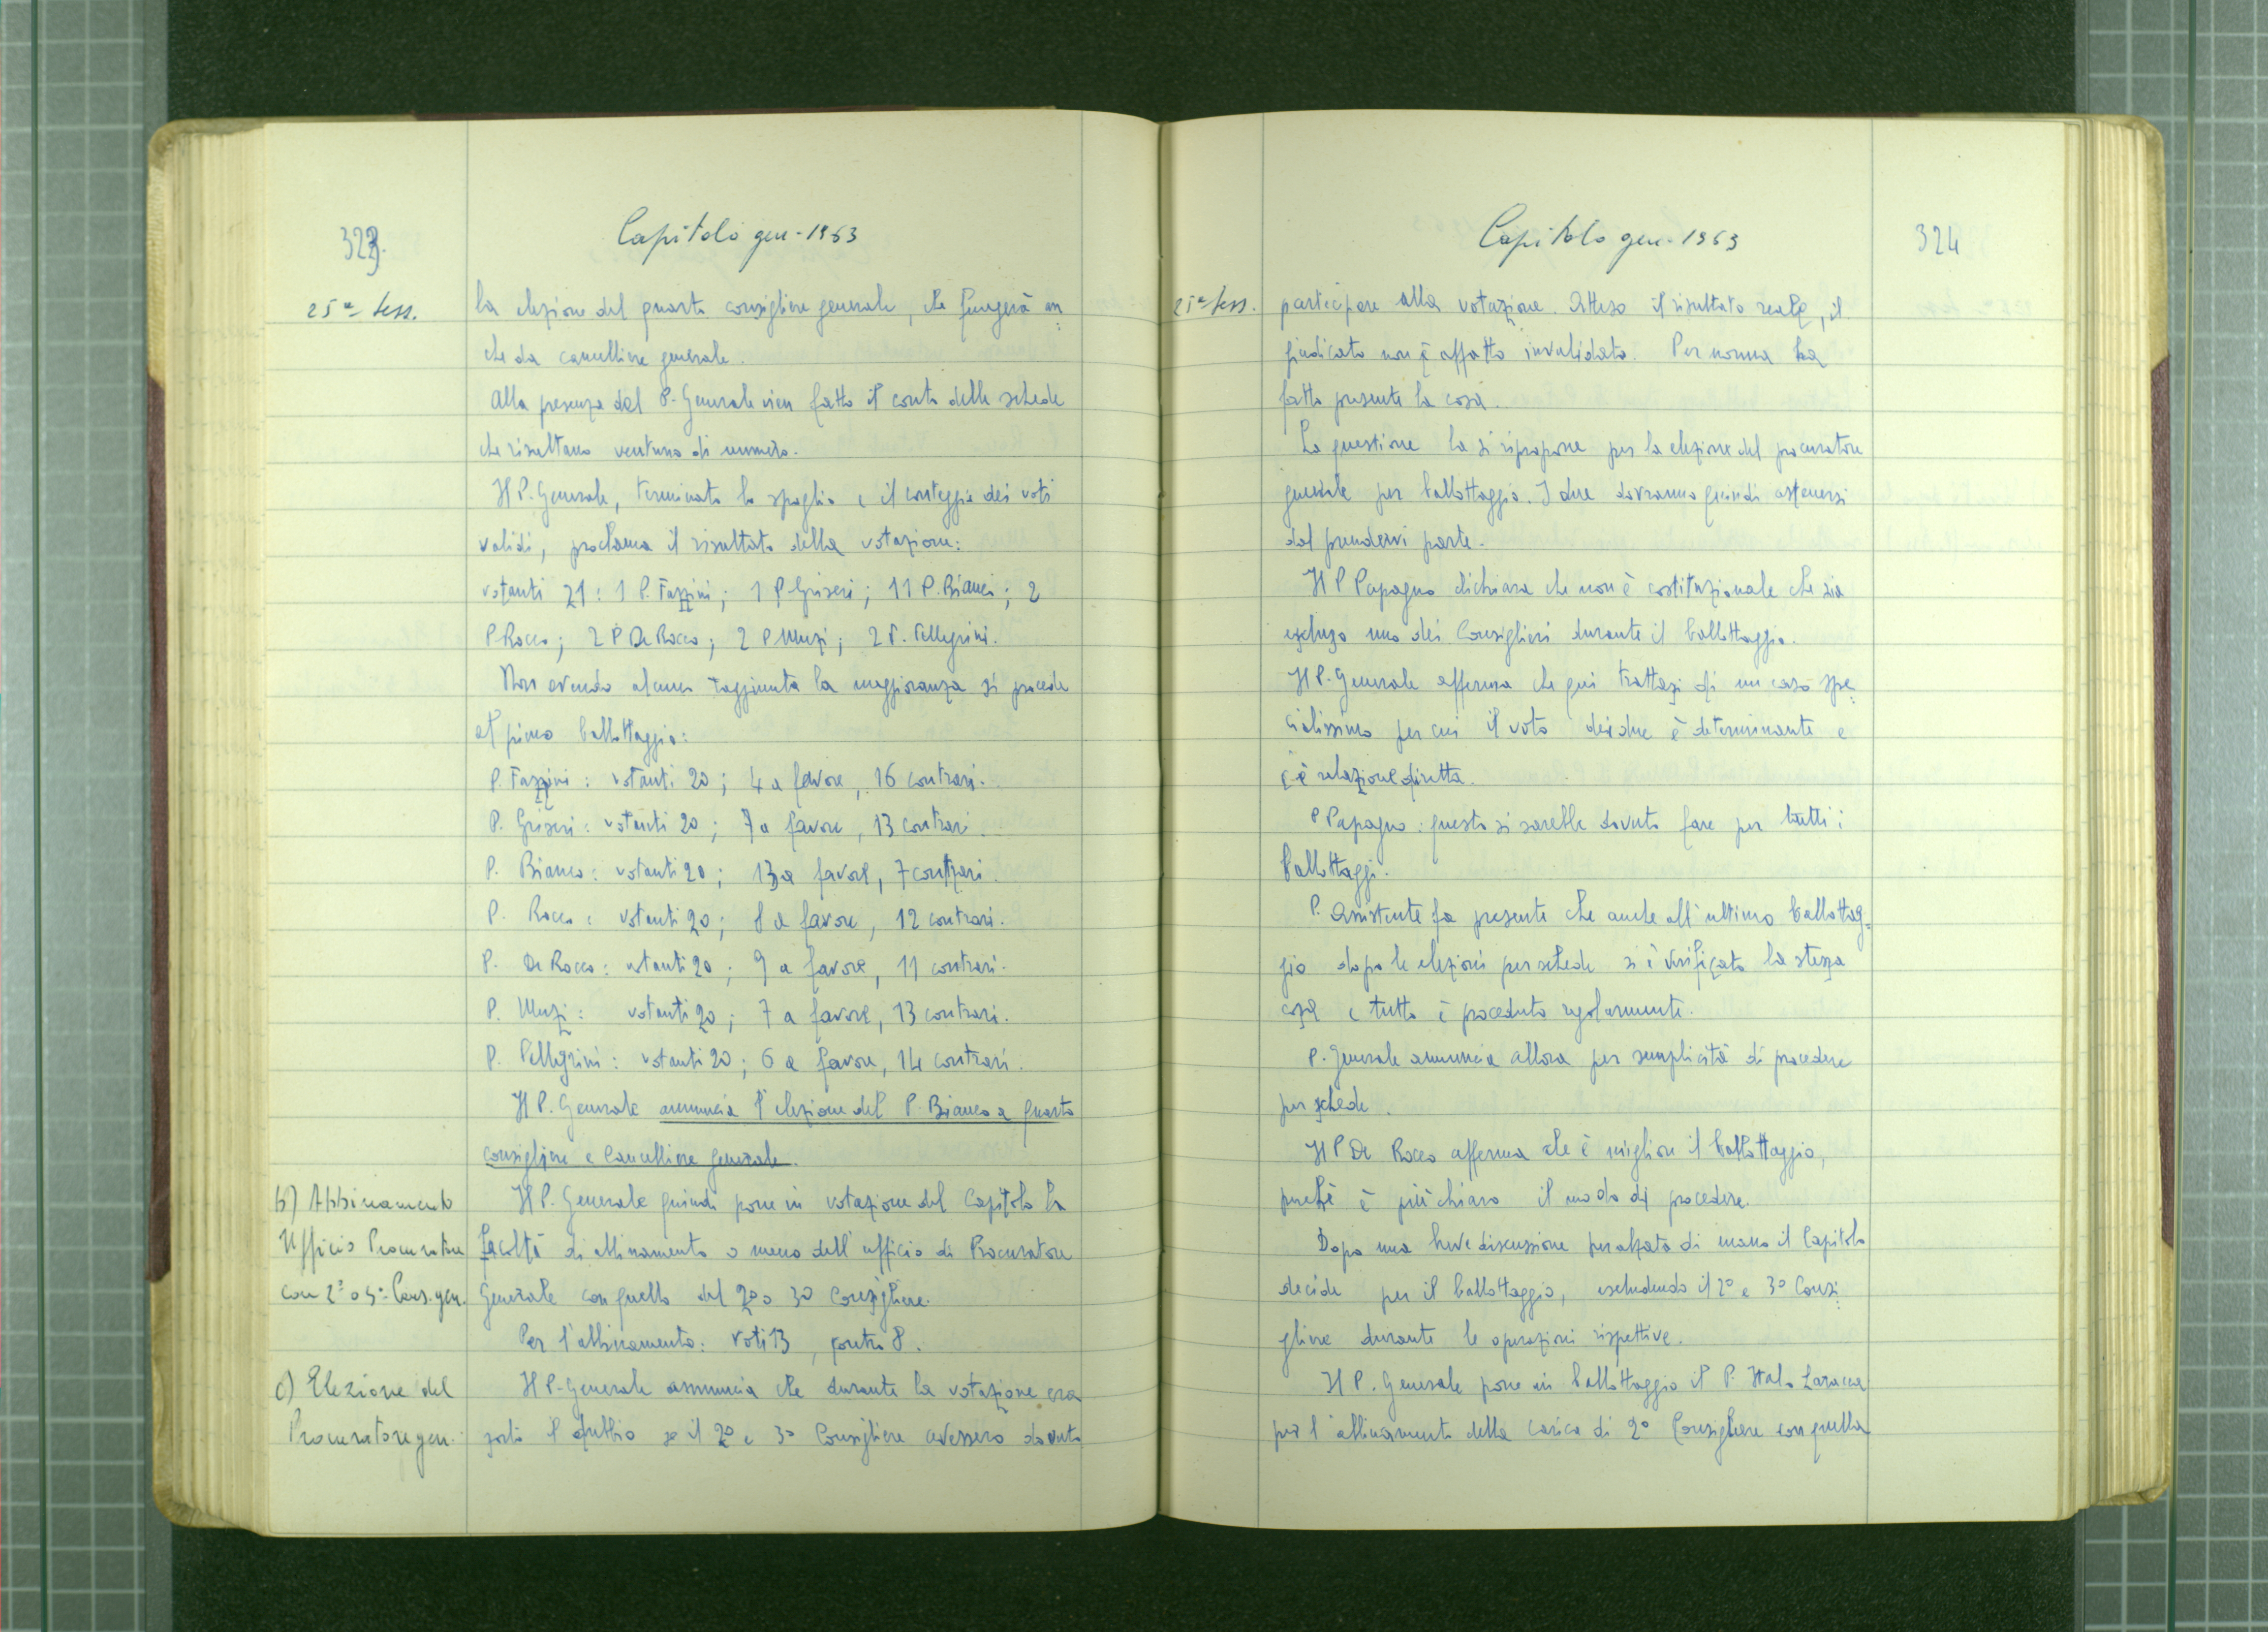 323.
Capitolo gen. 1963
25ª Sess.
la elezione del quarto consigliere generale, che fungerà an
che da cancelliere generale.
Alla presenza del P. Generale vien fatto il conto delle schede
che risultano ventuno di numero.
Il P. Generale, terminato lo spoglio e il conteggio dei voti
validi, proclama il risultato della votazione:
votanti 21: 1 P. Fazzini; 1 P. Griseri; 11 P. Bianco; 2
P Rocco; 2 P De Rocco; 2 P Muzi; 2 P. Pellegrini.
Non avendo alcuno raggiunta la maggioranza si procede
al primo ballottaggio:
P. Fazzini: votanti 20; 4 a favore, 16 contrari.
P. Griseri: votanti 20; 7 a favore, 13 contrari.
P. Bianco: votanti 20; 13 a favore, 7 contrari.
P. Rocco: votanti 20; 8 a favore, 12 contrari.
P. De Rocco: votanti 20; 9 a favore, 11 contrari.
P. Muzi: votanti 20; 7 a favore, 13 contrari.
P. Pellegrini: votanti 20; 6 a favore, 14 contrari.
Il P. Generale annuncia l'elezione del P. Bianco a quarto
consigliere e Cancelliere generale.
b) Abbinamento
Ufficio Procuratore
con 2º o 3º Cons. gen.
Il P. Generale quindi pone in votazione del Capitolo la
facoltà di abbinamento o meno dell'ufficio di Procuratore
Generale con quello del 2º o 3º Consigliere.
Per l'abbinamento: voti 13, contro 8.
c) Elezione del
Procuratore gen.
Il P. Generale annuncia che durante la votazione era
sorto il dubbio se il 2º e 3º Consigliere avessero dovuto
Capitolo gen. 1963
324
25ª Sess.
participare alla votazione. Atteso il risultato reale, il
giudicato non è affatto invalidato. Per norma ha
fatto presente la cosa.
La questione la si ripropone per la elezione del procuratore
generale per ballottaggio. I due dovranno quindi astenersi
dal prendervi parte.
Il P Papagno dichiara che non è costituzionale che sia
escluso uno dei Consiglieri durante il ballottaggio.
Il P. Generale afferma che qui trattasi di un caso spe
cialissimo per cui il voto dei due è determinante e
c'è relazione diretta.
P Papagno: questo si sarebbe dovuto fare per tutti i
ballottaggi.
P. Assistente fa presente che anche all'ultimo ballottag=
gio dopo le elezioni per schede si è verificata la stessa
cosa e tutto è proceduto regolarmente.
P. Generale annuncia allora per semplicità di procedere
per schede.
Il P De Rocco afferma che è migliore il ballottaggio,
perchè è più chiaro il modo di procedere.
Dopo una breve discussione per alzata di mano il Capitolo
decide per il ballottaggio, escludendo il 2º e 3º Consi
gliere durante le operazioni rispettive.
Il P. Generale pone in ballottaggio il P. Italo Laracca
per l'abbinamento della carica di 2º Consigliere con quella